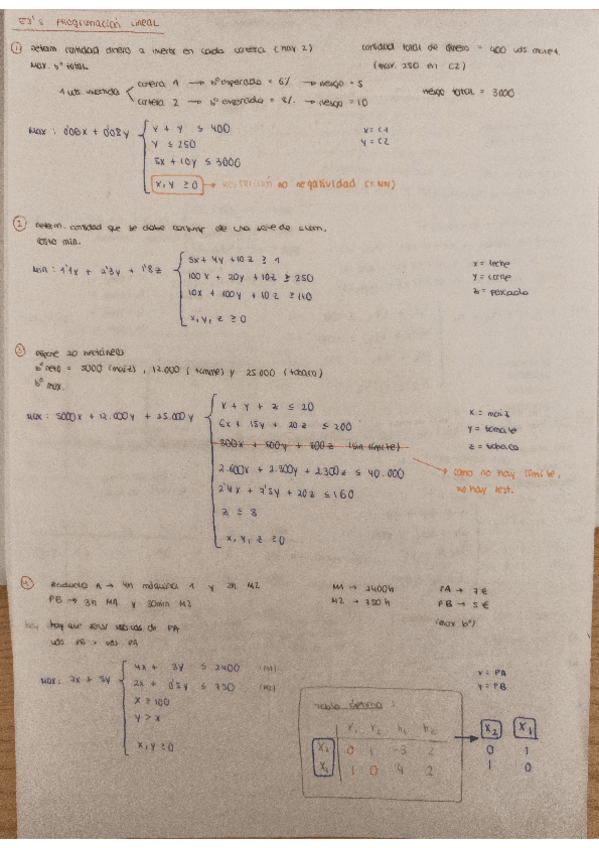 EJ'S PROGRAMACIÓN LINEAL
① determ. cantidad dinero a invertir en cada cartera (hay 2)
cantidad total de dinero = 400 uds. monet.
Max. bº total.
(max. 250 en C2)
1 ud. invertida
cartera 1 → bº esperado = 6% → riesgo = 5
cartera 2 → bº esperado = 8% → riesgo = 10
riesgo total = 3000
Max: 0'06x + 0'08y
x + y ≤ 400
y ≤ 250
5x + 10y ≤ 3000
x, y ≥ 0 → RESTRICCIÓN no negatividad
x = C1
y = C2
② determ. cantidad que se debe de una
coste min.
Min: 1'1x + 2'3y + 1'8z
5x + 4y + 10z ≥ 1
100x + 20y + 10z ≥ 250
10x + 100y + 10z ≥ 110
x, y, z ≥ 0
x = leche
y = carne
z = pescado
③ 20 hectáreas
bº neto = 5000 (maíz), 12.000 (tomate) y 25.000 (tabaco)
bº max.
Max: 5000x + 12.000y + 25.000y
x + y + z ≤ 20
6x + 15y + 20z ≤ 200
(sin límite)
2.600x + 2.300z ≤ 40.000
+ 20z ≤ 160
z ≤ 8
x, y, z ≥ 0
x = maíz
y = tomate
z = tabaco
→ como no hay límite,
no hay rest.
④ Producto A → 4h máquina 1 y 2h M2
PB → 3h MA y 30min M2
M1 → 2400h
M2 → 750h
PA → 7 €
PB → 5 €
(max bº)
hay que PA
uds PB > uds PA
Max: 7x + 5y
4x + 3y ≤ 2400 (M1)
2x + 0'5y ≤ 750 (M2)
x ≥ 100
y > x
x, y ≥ 0
x = PA
y = PB
Tabla óptima:
h₁ h₂
X₂ 0 1 -3 2
X₁ 1 0 4 2
X₂ X₁
0 1
1 0